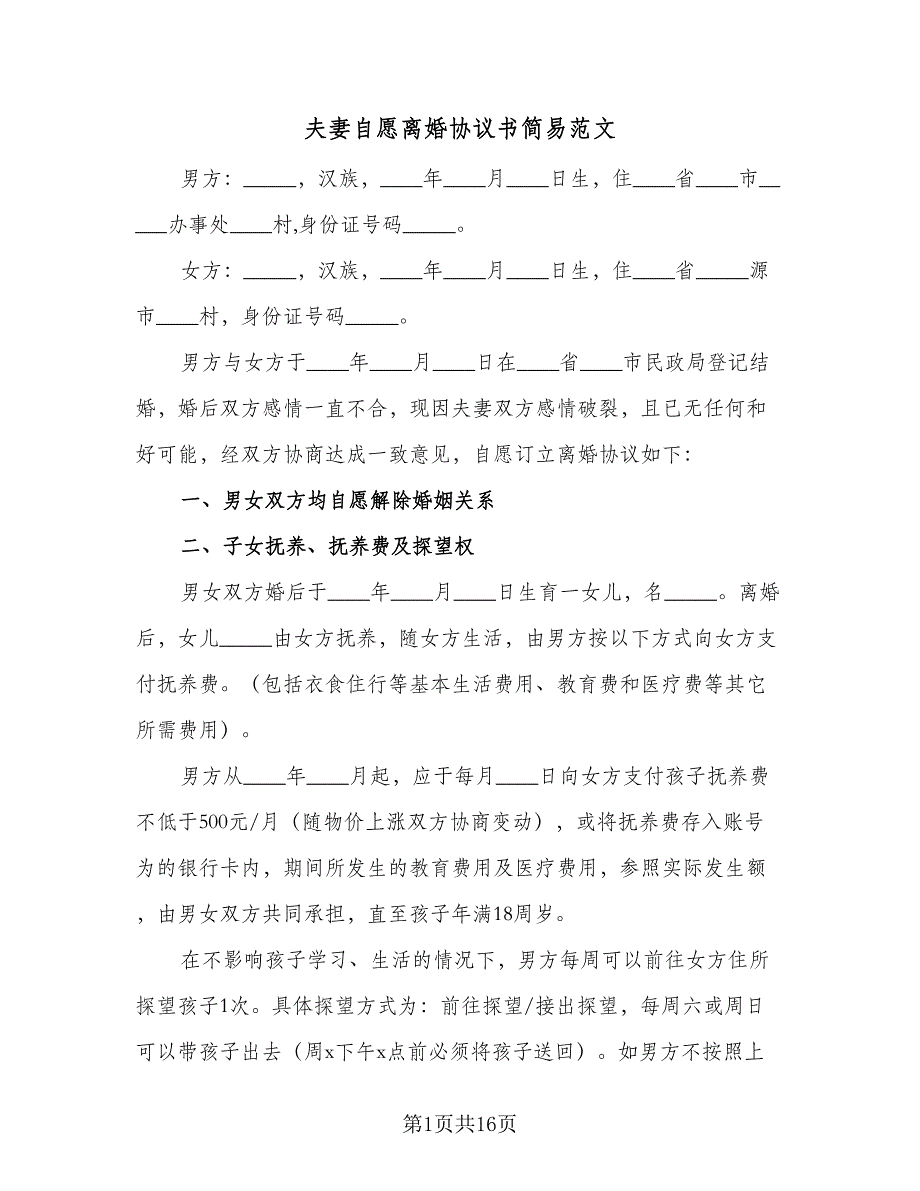 夫妻自愿离婚协议书简易范文
男方：_____，汉族，____年____月____日生，住____省____市__
___办事处____村,身份证号码_____。
女方：_____，汉族，____年____月____日生，住____省_____源
市____村，身份证号码_____。
男方与女方于____年____月____日在____省____市民政局登记结
婚，婚后双方感情一直不合，现因夫妻双方感情破裂，且已无任何和
好可能，经双方协商达成一致意见，自愿订立离婚协议如下：
一、男女双方均自愿解除婚姻关系
二、子女抚养、抚养费及探望权
男女双方婚后于____年____月____日生育一女儿，名_____。离婚
后，女儿_____由女方抚养，随女方生活，由男方按以下方式向女方支
付抚养费。（包括衣食住行等基本生活费用、教育费和医疗费等其它
所需费用）。
男方从____年____月起，应于每月____日向女方支付孩子抚养费
不低于500元/月（随物价上涨双方协商变动），或将抚养费存入账号
为的银行卡内，期间所发生的教育费用及医疗费用，参照实际发生额
，由男女双方共同承担，直至孩子年满18周岁。
在不影响孩子学习、生活的情况下，男方每周可以前往女方住所
探望孩子1次。具体探望方式为：前往探望/接出探望，每周六或周日
可以带孩子出去（周x下午x点前必须将孩子送回）。如男方不按照上
第1页共16页